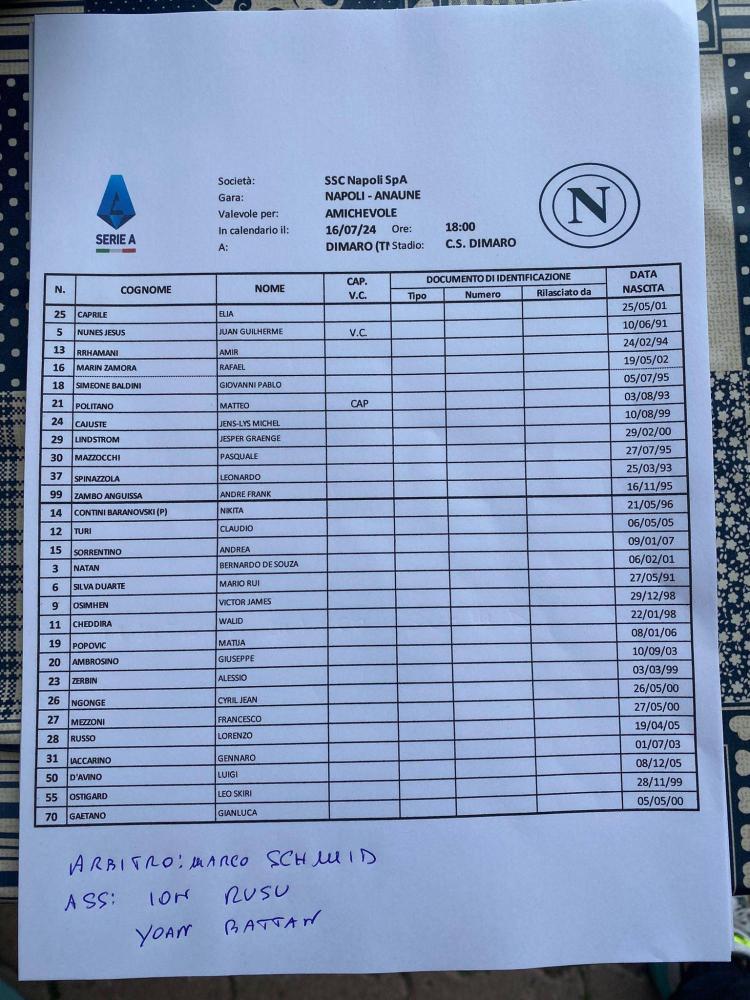 SERIE A
Società: SSC Napoli SpA
Gara: NAPOLI - ANAUNE
Valevole per: AMICHEVOLE
In calendario il: 16/07/24 Ore: 18:00
A: DIMARO (TN Stadio: C.S. DIMARO
N
N. COGNOME NOME CAP. V.C. DOCUMENTO DI IDENTIFICAZIONE DATA NASCITA
Tipo Numero Rilasciato da
25 CAPRILE ELIA 25/05/01
5 NUNES JESUS JUAN GUILHERME V.C. 10/06/91
13 RRHAMANI AMIR 24/02/94
16 MARIN ZAMORA RAFAEL 19/05/02
18 SIMEONE BALDINI GIOVANNI PABLO 05/07/95
21 POLITANO MATTEO CAP 03/08/93
24 CAJUSTE JENS-LYS MICHEL 10/08/99
29 LINDSTROM JESPER GRAENGE 29/02/00
30 MAZZOCCHI PASQUALE 27/07/95
37 SPINAZZOLA LEONARDO 25/03/93
99 ZAMBO ANGUISSA ANDRE FRANK 16/11/95
14 CONTINI BARANOVSKI (P) NIKITA 21/05/96
12 TURI CLAUDIO 06/05/05
15 SORRENTINO ANDREA 09/01/07
3 NATAN BERNARDO DE SOUZA 06/02/01
6 SILVA DUARTE MARIO RUI 27/05/91
9 OSIMHEN VICTOR JAMES 29/12/98
11 CHEDDIRA WALID 22/01/98
19 POPOVIC MATIJA 08/01/06
20 AMBROSINO GIUSEPPE 10/09/03
23 ZERBIN ALESSIO 03/03/99
26 NGONGE CYRIL JEAN 26/05/00
27 MEZZONI FRANCESCO 27/05/00
28 RUSSO LORENZO 19/04/05
31 IACCARINO GENNARO 01/07/03
50 D'AVINO LUIGI 08/12/05
55 OSTIGARD LEO SKIRI 28/11/99
70 GAETANO GIANLUCA 05/05/00
ARBITRO: MARCO SCHMID
ASS: ION RUSU
YOAN BATTAN